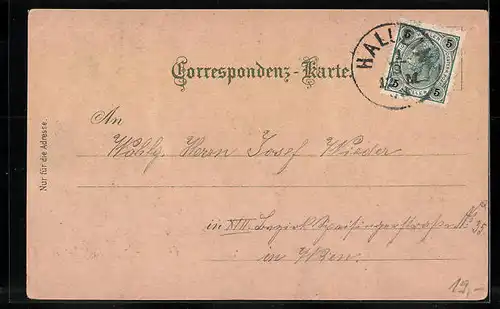 Correspondenz-Karte.
HALL
5 5
5 5
An
Wohlg. Herrn Josef Wieder
in XIII. Bezirk Speisingerstraße No 35.
in Wien.
Nur für die Adresse.
19,-